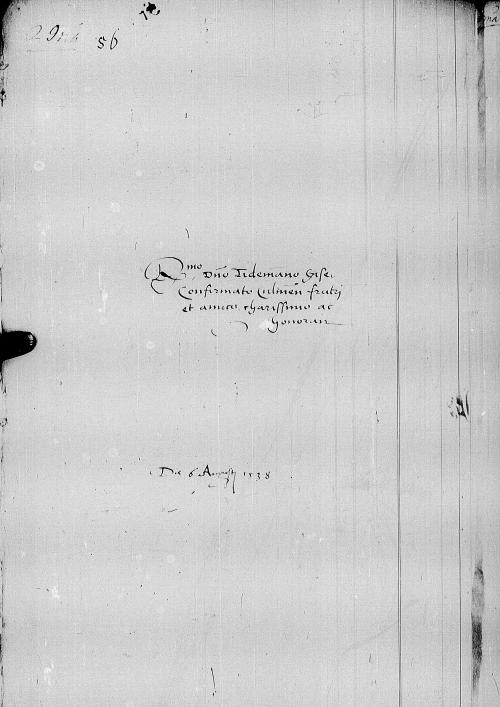 56
Rmo Dno Tidemano Gise
Confirmato Culmen fratri
et amico charissimo ac
honoran
Die 6 Augusti 1538